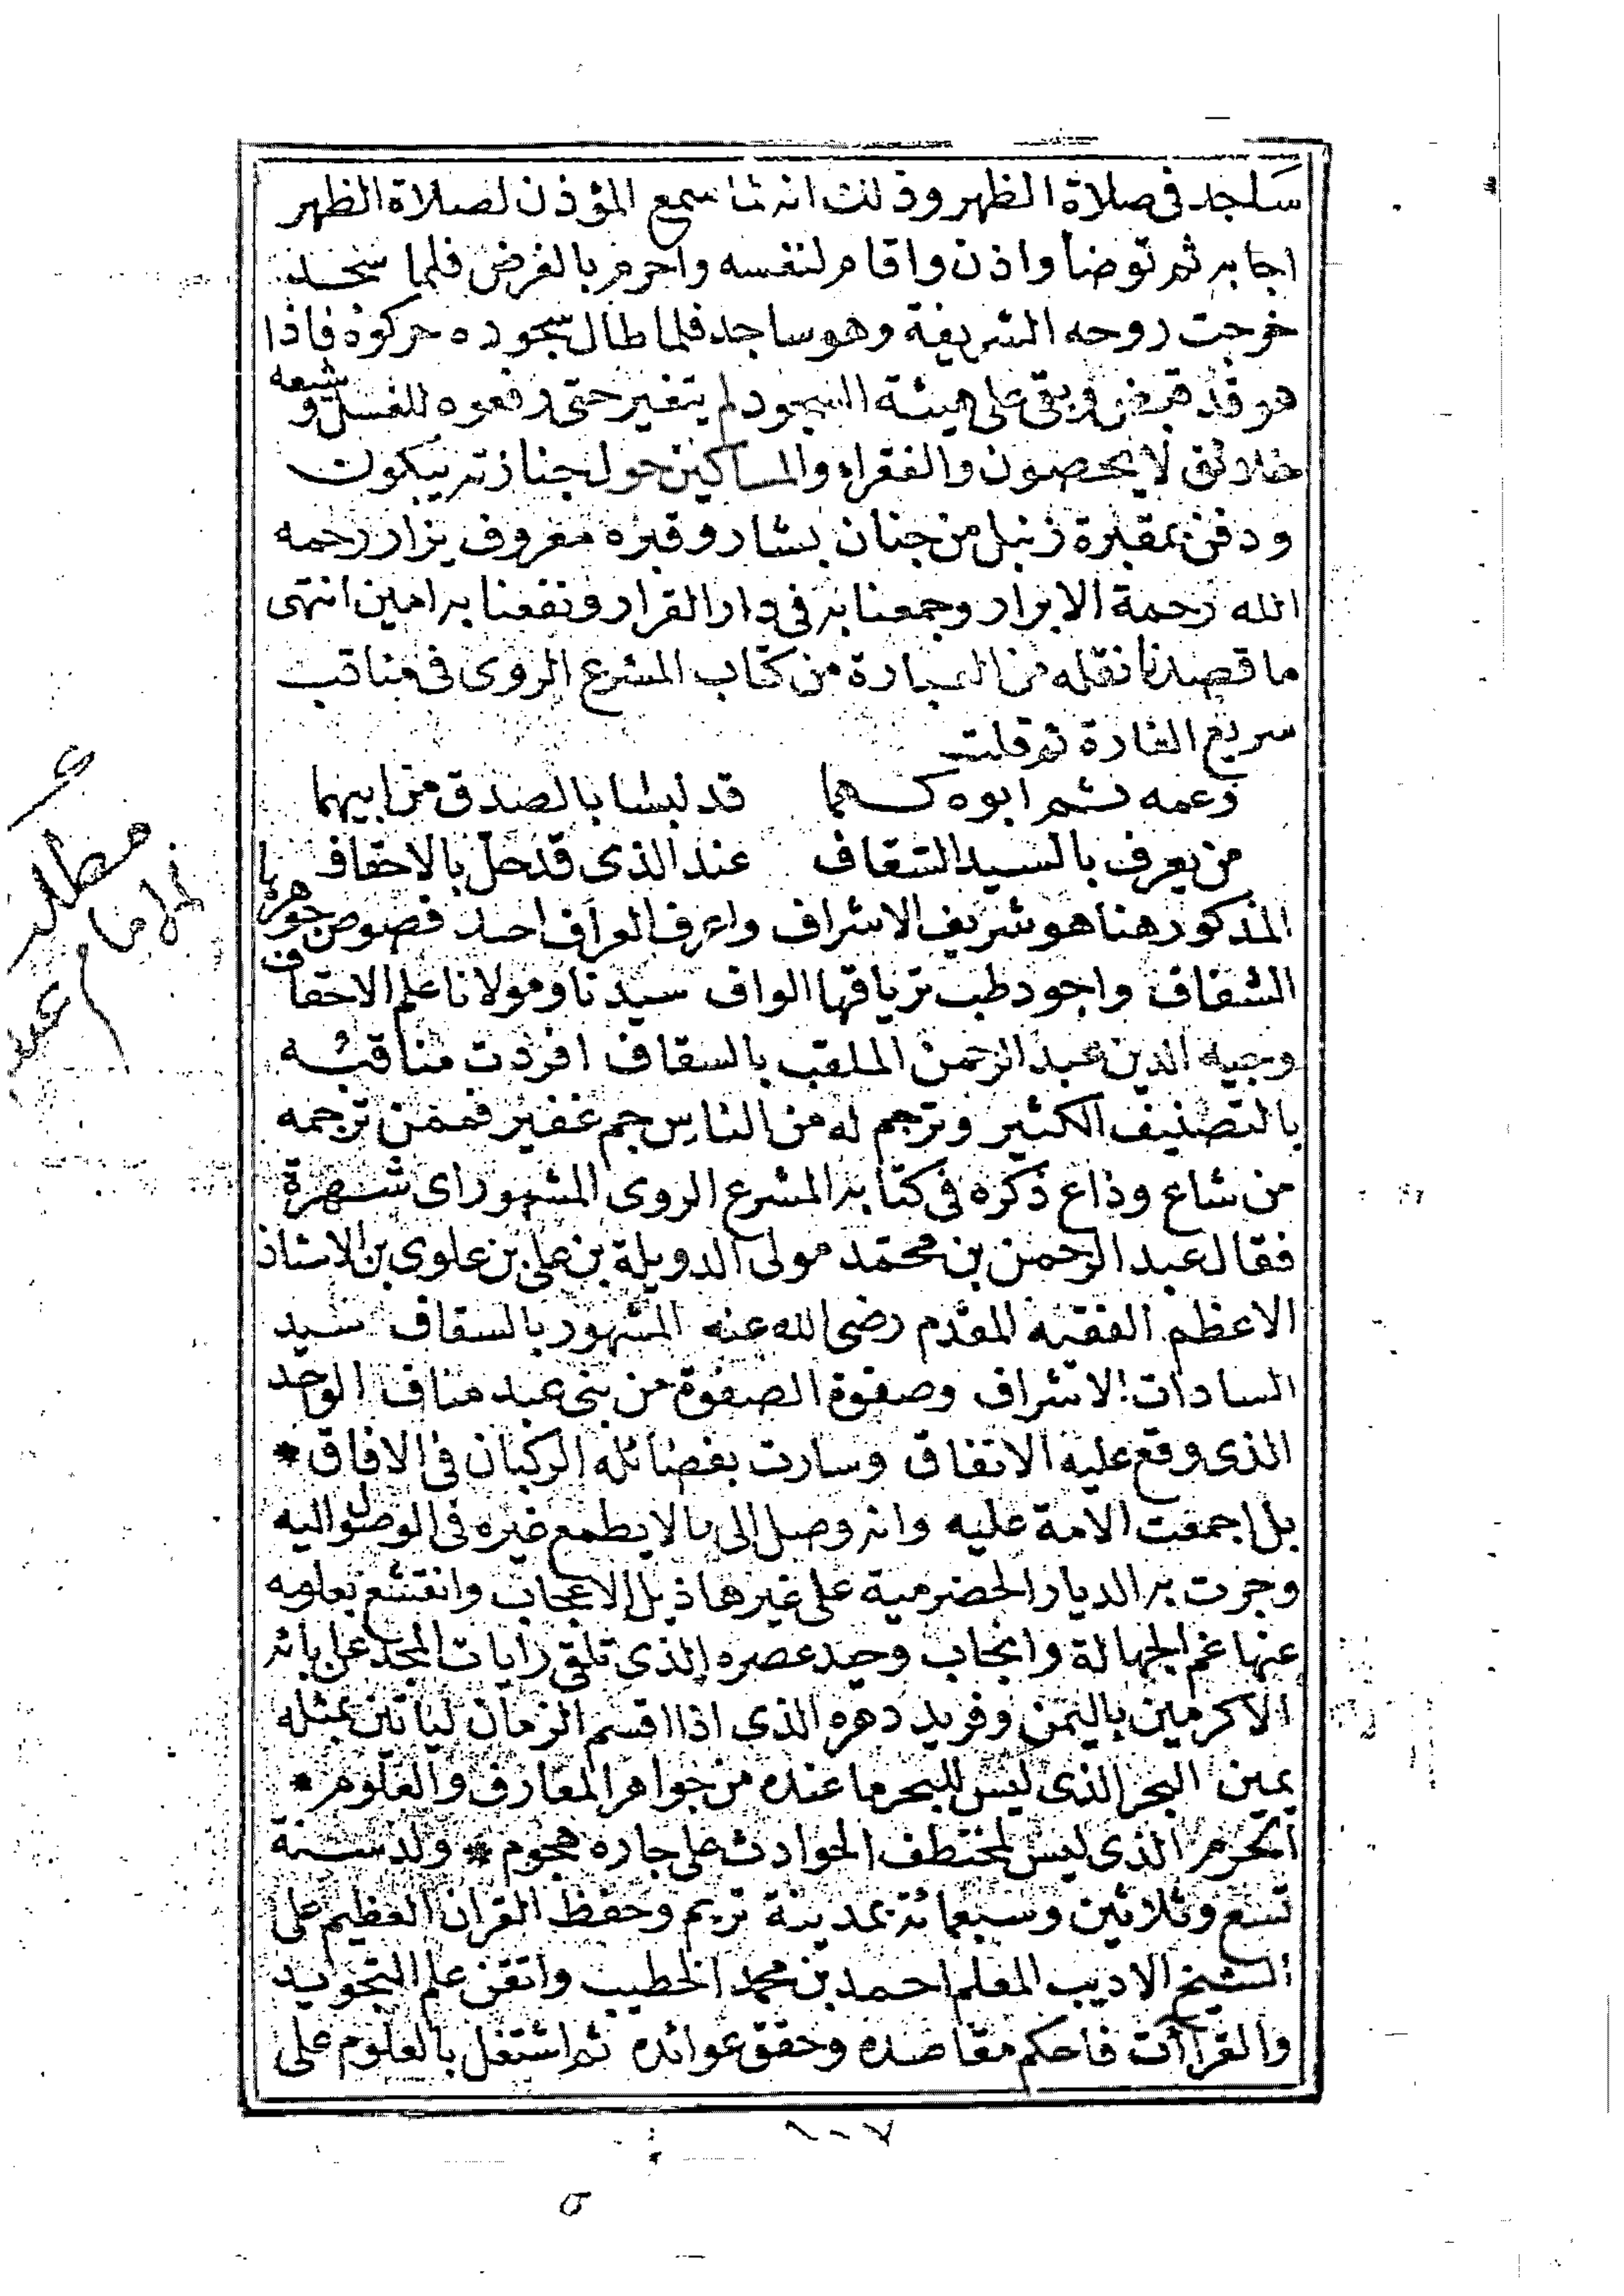 ساجد فى صلاة الظهر وذلك انه لما سمع المؤذن لصلاة الظهر
اجابه ثم توضأ واذن واقام لنفسه واحرم بالفرض فلما سجد
خرجت روحه الشريفة وهو ساجد فلما طال سجوده حركوه فاذا
هو قد قبض وبقى على هيئة السجود لم يتغير حتى رفعوه للغسل وشيعه
خلائق لا يحصون والفقراء والمساكين حول جنازته يبكون
ودفن بمقبرة زنبل من جنان بشار وقبره معروف يزار رحمه
الله رحمة الابرار وجمعنا به فى دار القرار ونفعنا به امين انتهى
ما قصدنا نقله من العبارة من كتاب المشرع الروى فى مناقب
سريع الغارة ثم قلت
وعمه ثم ابوه كهما قد لبسا بالصدق من ابيهما
من يعرف بالسيد السقاف عند الذى قد حل بالاحقاف
المذكور هنا هو شريف الاشراف واعرف العراف احد فصوص جوهرها
الشفاف واجود طب ترياقها الواف سيدنا ومولانا علم الاحقاف
وجيه الدين عبد الرحمن الملقب بالسقاف افردت مناقبه
بالتصنيف الكثير وترجم له من الناس جم غفير فممن ترجمه
من شاع وذاع ذكره فى كتابه المشرع الروى المشهور اى شهرة
فقال عبد الرحمن بن محمد مولى الدويلة بن على بن علوى بن الاستاذ
الاعظم الفقيه المقدم رضى الله عنه المشهور بالسقاف سيد
السادات الاشراف وصفوة الصفوة من بنى عبد مناف الوحد
الذى وقع عليه الاتفاق وسارت بفضائله الركبان فى الافاق *
بل اجمعت الامة عليه وانه وصل الى ما لا يطمع غيره فى الوصول اليه
وجرت به الديار الحضرمية على غيرها ذيل الاعجاب وانقشع بعلومه
عنها غم الجهالة وانجاب وحيد عصره الذى تلقى رايات المجد عن ابائه
الاكرمين باليمن وفريد دهره الذى اذا اقسم الزمان لياتين بمثله
يمين البحر الذى ليس للبحر ما عنده من جواهر المعارف والعلوم *
الحرم الذى ليس لمختطف الحوادث على جاره هجوم * ولد سنة
تسع وثلاثين وسبعمائة بمدينة تريم وحفظ القران العظيم على
الشيخ الاديب المعلم احمد بن محمد الخطيب واتقن علم التجويد
والقراآت فاحكم مقاصده وحقق عوائده ثم اشتغل بالعلوم على
مطلب
الامام
عبد